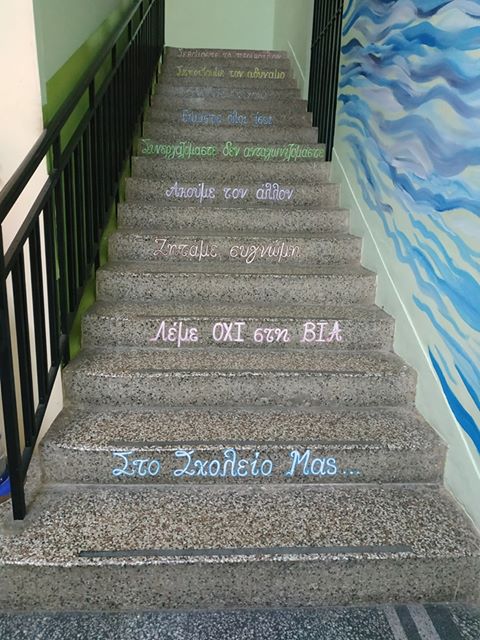 τον αδύναμο
Είμαστε όλοι ίσοι
Συνεργαζόμαστε δεν ανταγωνιζόμαστε
Ακούμε τον άλλον
Ζητάμε συγνώμη
Λέμε ΟΧΙ στη ΒΙΑ
Στο Σχολείο Μας...